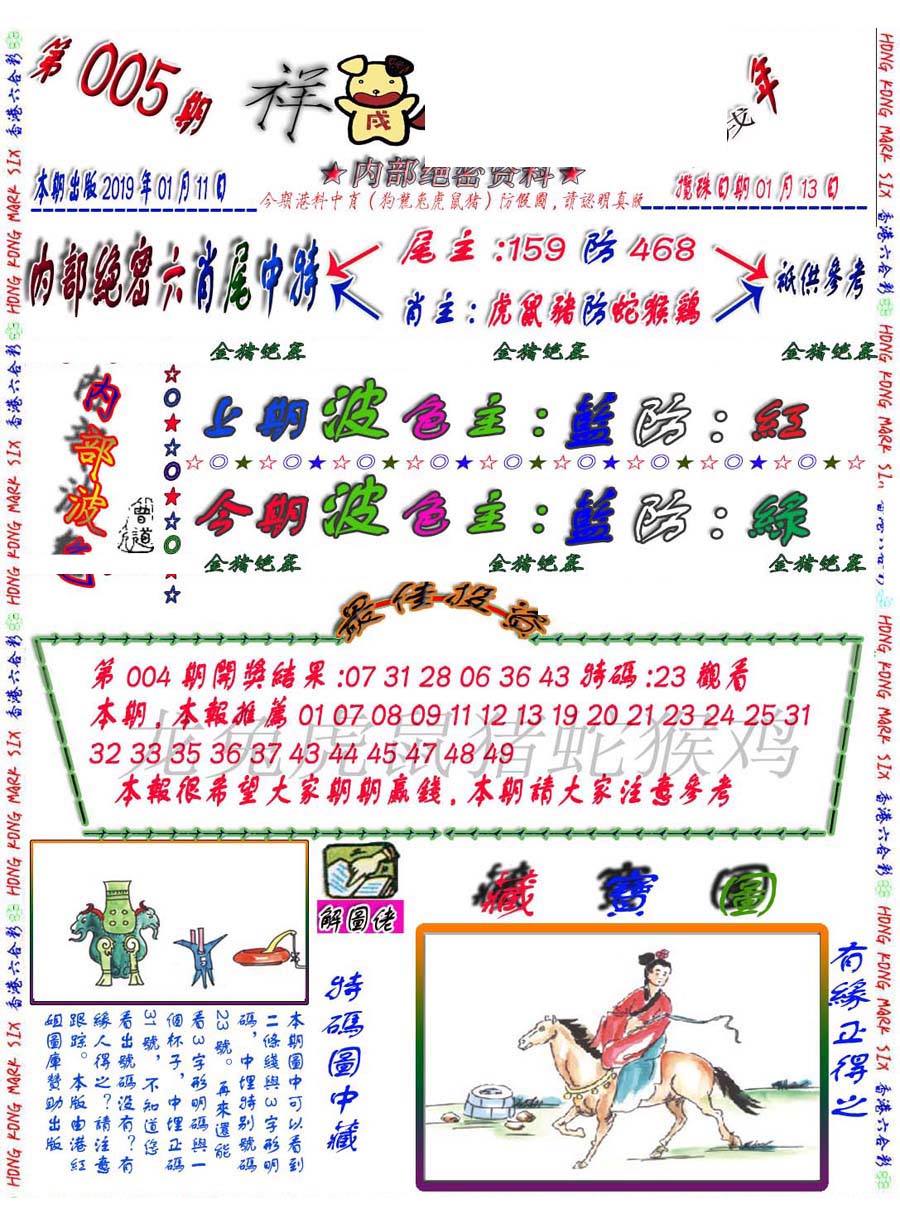 第005期
祥
戌
年
★内部绝密资料★
本期出版2019年01月11日
今期港料中肖(狗龍兔虎鼠猪)防假圖,請認明真版
攪珠日期01月13日
内部绝密六肖尾中特
尾主:159防468
肖主:虎鼠豬防蛇猴鶏
祗供參考
金猪绝密 金猪绝密 金猪绝密
内部波色
曾道
上期波色主:藍防:紅
今期波色主:藍防:綠
金猪绝密 金猪绝密 金猪绝密
最佳投
第004期開獎結果:07 31 28 06 36 43 特碼:23 觀看
本期,本報推薦 01 07 08 09 11 12 13 19 20 21 23 24 25 31
32 33 35 36 37 43 44 45 47 48 49
龙兔虎鼠猪蛇猴鸡
本報很希望大家期期贏錢,本期請大家注意參考
解圖佬
藏寶圖
特碼圖中藏
有緣正得之
本期圖中可以看到
二條綫與3字形明
碼,中埋特别號碼
23號。再來還能
看3字形明碼與一
個杯子,中埋正碼
31號,不知道您
看出號碼没有?有
緣人得之?請注意
跟踪。本版由港紅
姐圖庫贊助出版
HONG KONG MARK SIX 香港六合彩 HONG KONG MARK SIX 香港六合彩 HONG KONG MARK SIX 香港六合彩 HONG KONG MARK SIX 香港六合彩
HONG KONG MARK SIX 香港六合彩 HONG KONG MARK HONG KONG MARK SIX 香港六合彩 HONG KONG MARK SIX 香港六合彩